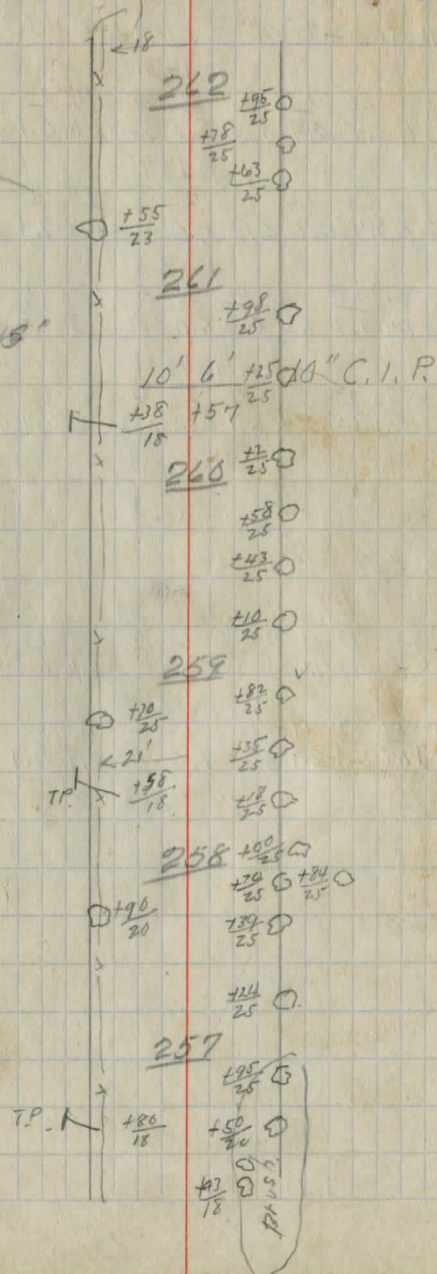 18
262 +95/25
+78/25
+63/25
+55/23
261
+98/25
10' 6' +25/25 10" C.I.P.
+38/18 +57
260 +7/25
+58/25
+43/25
+10/25
259
+82/25
+70/25
+35/25
21'
T.P. +58/18
+18/25
258 +00/25
+70/25 +84/25
+90/20
+39/25
+24/25
257
+95/25
T.P. +86/18 +50/20
+43/18